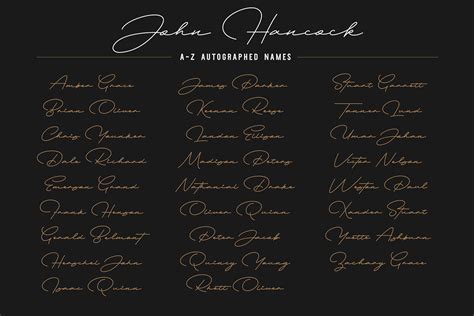 John Hancock
A-Z AUTOGRAPHED NAMES
Amber Grace
Brian Oliver
Chris Younker
Dale Richard
Emerson Grand
Frank Henson
Gerald Belmont
Herschel John
Isaac Quinn
James Parker
Keenan Reese
Landen Ellison
Madison Peters
Nathaniel Drake
Oliver Quinn
Peter Jacob
Quincy Young
Rhett Oliver
Stuart Garrett
Tanner Lund
Umar Johan
Victor Nelson
Weston Paul
Xander Stuart
Yvette Ashman
Zachary Grace